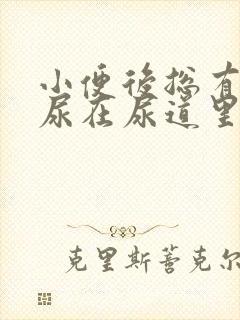 小便後总有
尿在尿道里
克里斯蒂克尔